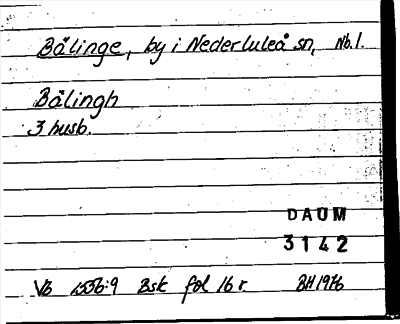 Bälinge, by i Nederluleå sn, Nb.l.
Bälingh
3 husb.
DAUM
3142
Vb 1536:9 Bsk fol 16 r. BH 1976